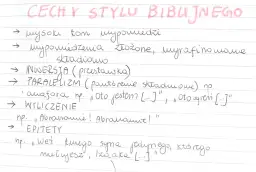 CECHY STYLU BIBLIJNEGO
→ wysoki ton wypowiedzi
→ wypowiedzenia złożone, wyrafinowane
składniowo
→ INWERSJA (przestawnia)
→ PARALELIZM (powtórzenie składniowe) np
anafora np. „Oto jestem [...]", „oto ogień [...]"
→ WYLICZENIE
np. „Abrahamie! Abrahamie!"
→ EPITETY
np. „Weź twego syna jedynego, którego
miłujesz, Izaaka [...]"